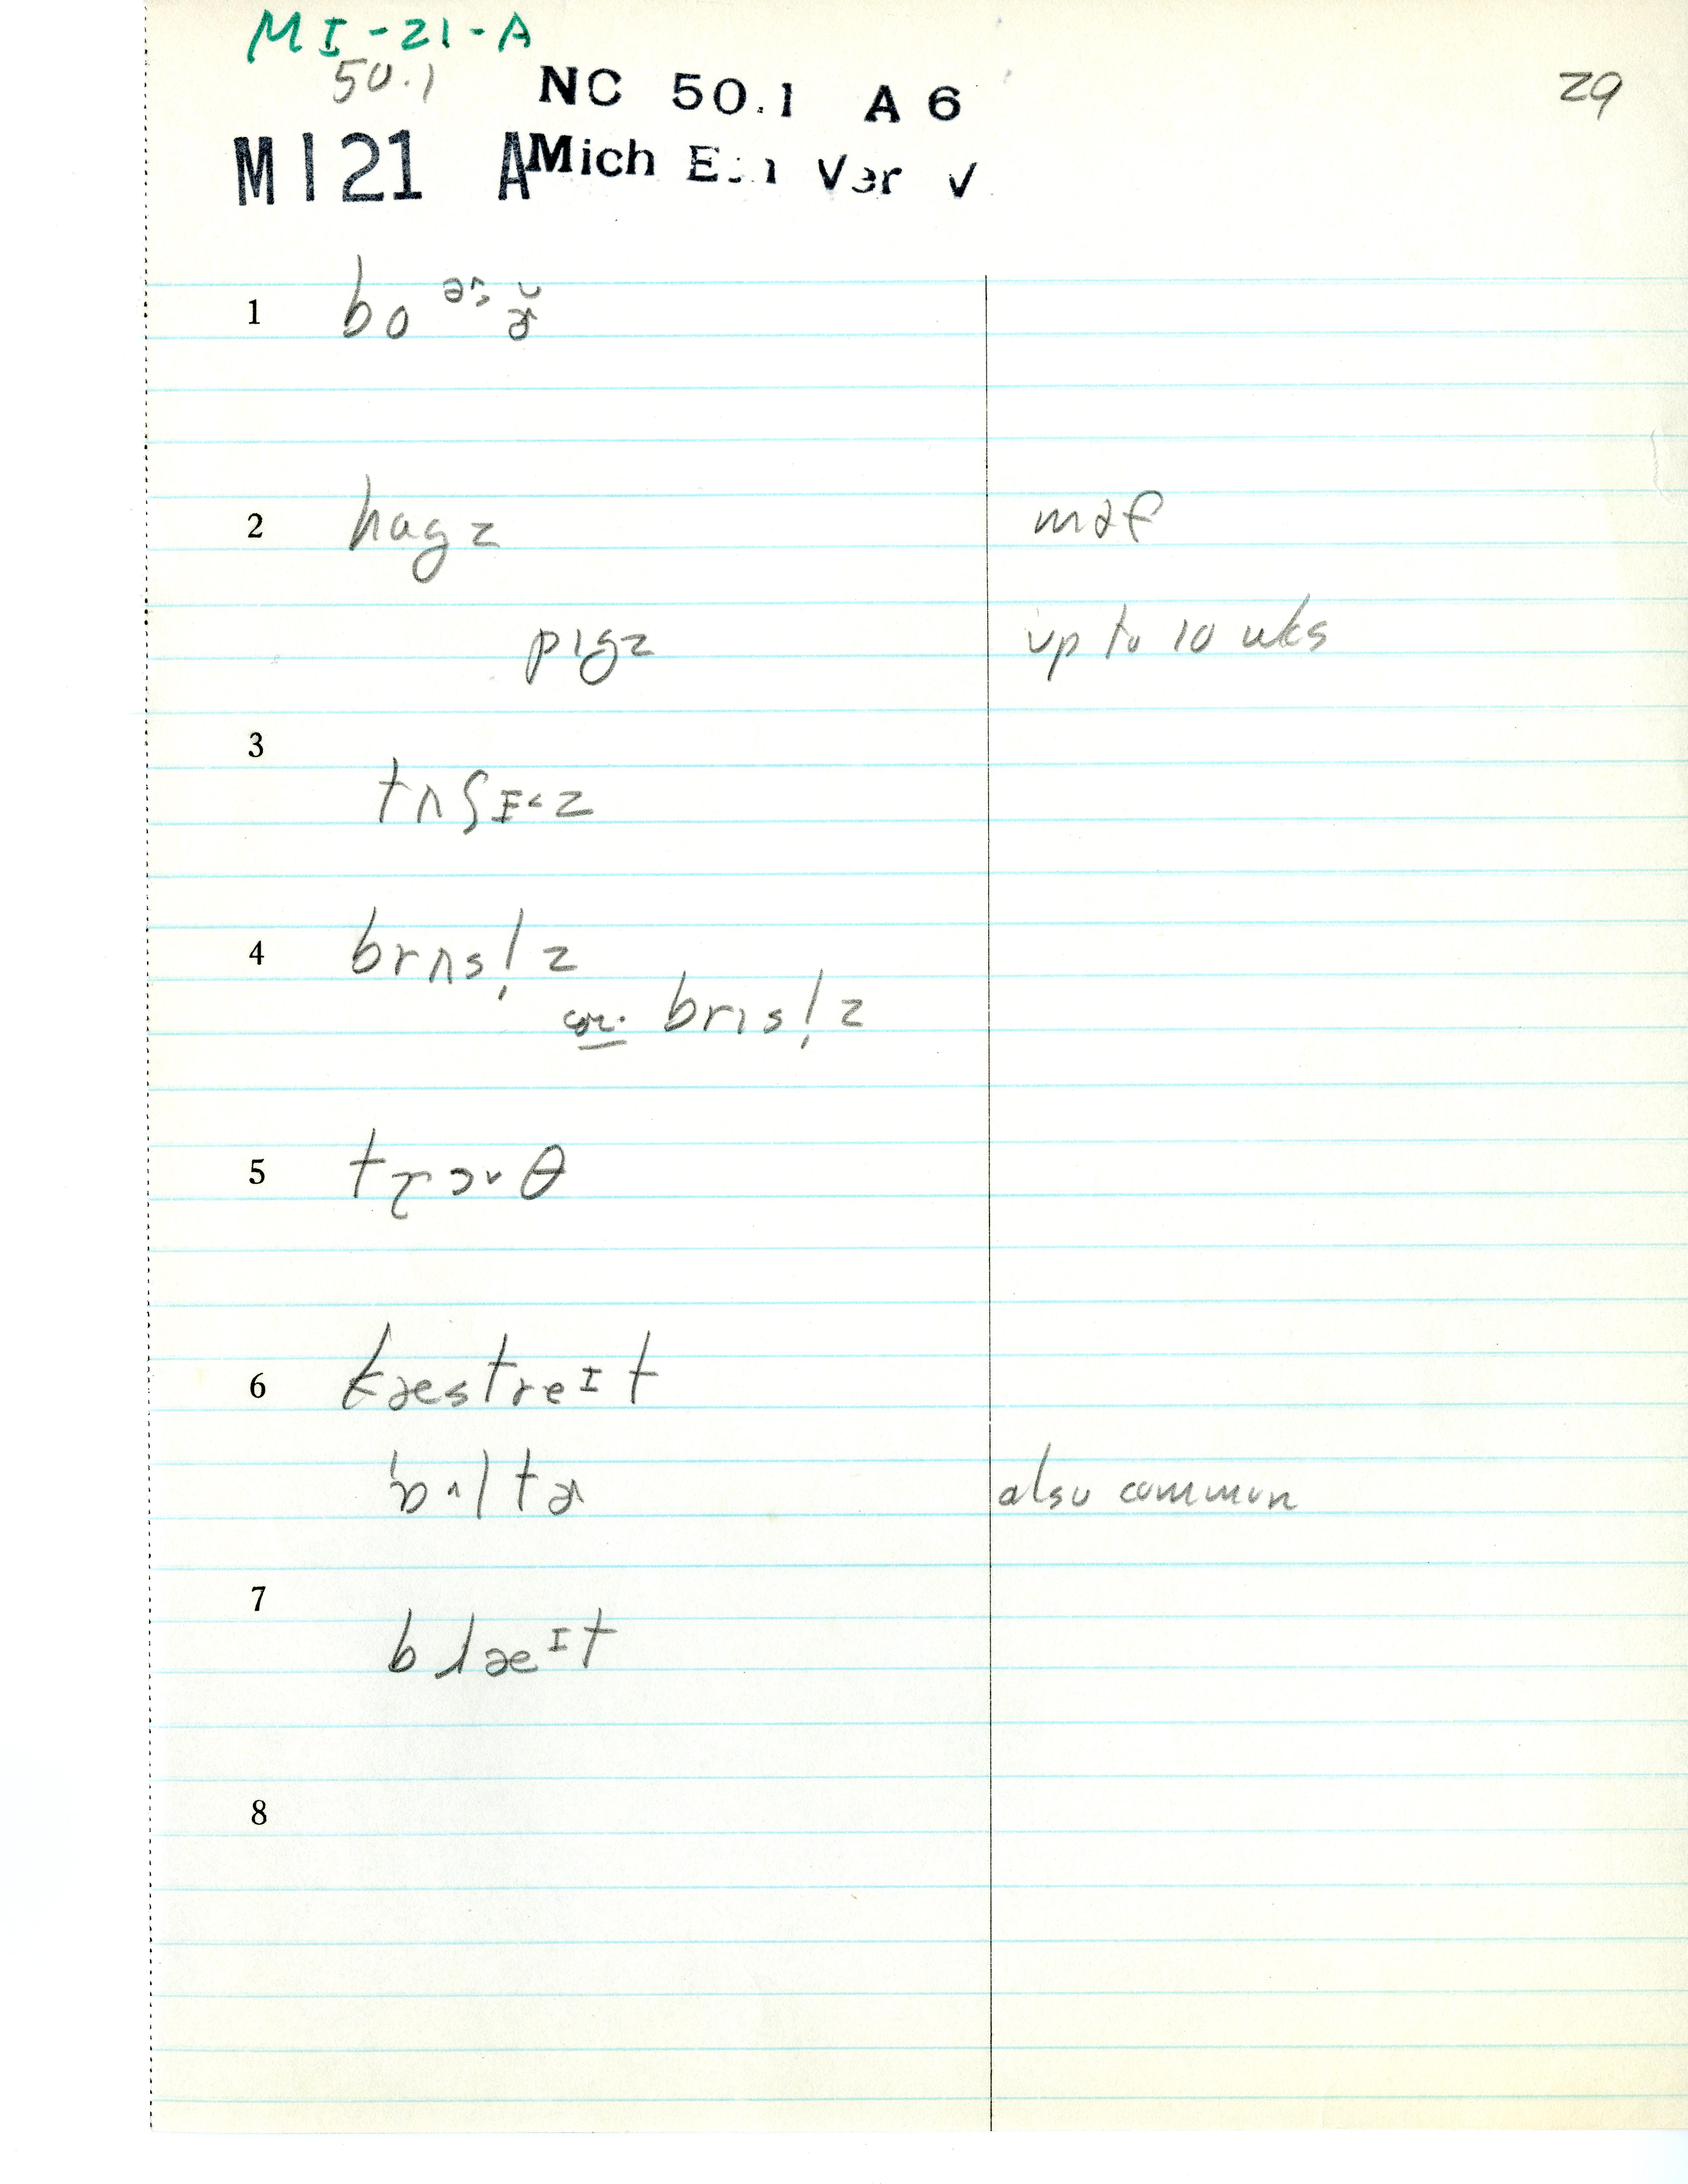 MI-21-A
50.1 NC 50.1 A 6 29
MI21 A Mich Ver V
1 bo
2 hagz m & f
pigz up to 10 wks
3 tʌʃɪ˂z
4 brʌsl̩z
cor. brɪsl̩z
5 θ
6 kæstreɪt
also common
7 blæɪt
8